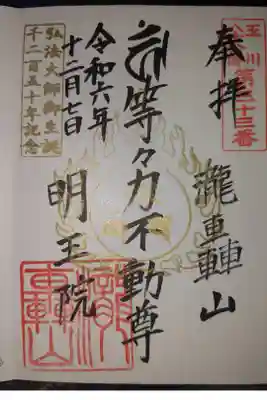 奉拝
玉川
第三十三番
瀧轟山
等々力不動尊
令和六年
十二月七日
明王院
弘法大師御生誕
千二百五十年記念
瀧轟山